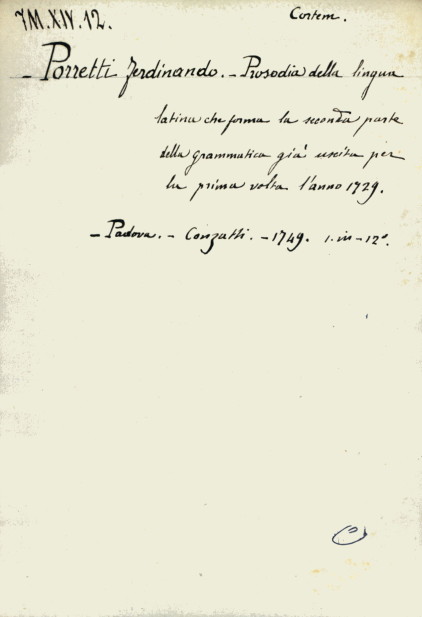 7M.XIV.12.
Cortem.
- Porretti Ferdinando. - Prosodia della lingua
latina che forma la seconda parte
della grammatica già uscita per
la prima volta l'anno 1729.
- Padova. - Conzatti. - 1749. 1. in - 12°.